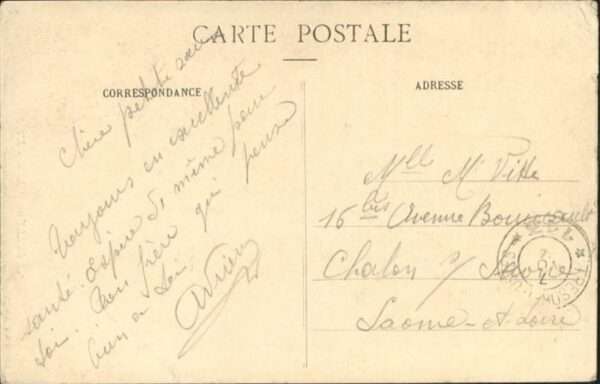 CARTE POSTALE
CORRESPONDANCE
ADRESSE
Chère petite sœur
Toujours en excellente
santé. Espère de même pour
toi. Ton frère qui pense
bien à toi.
Adrien
Mlle M Vitte
16 bis Avenue Boucicault
Chalon s/ Saône
Saône-et-Loire
TRESOR